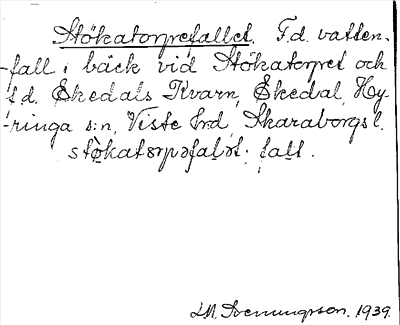 Stökatorpefallet. F.d. vatten-
-fall i bäck vid Stökatorpet och
f.d. Ekedals Kvarn, Ekedal, Hy-
-ringa s:n, Viste hrd, Skaraborgs l.
stökatorpəfalət: fall.
L.M. Svenungsson. 1939.